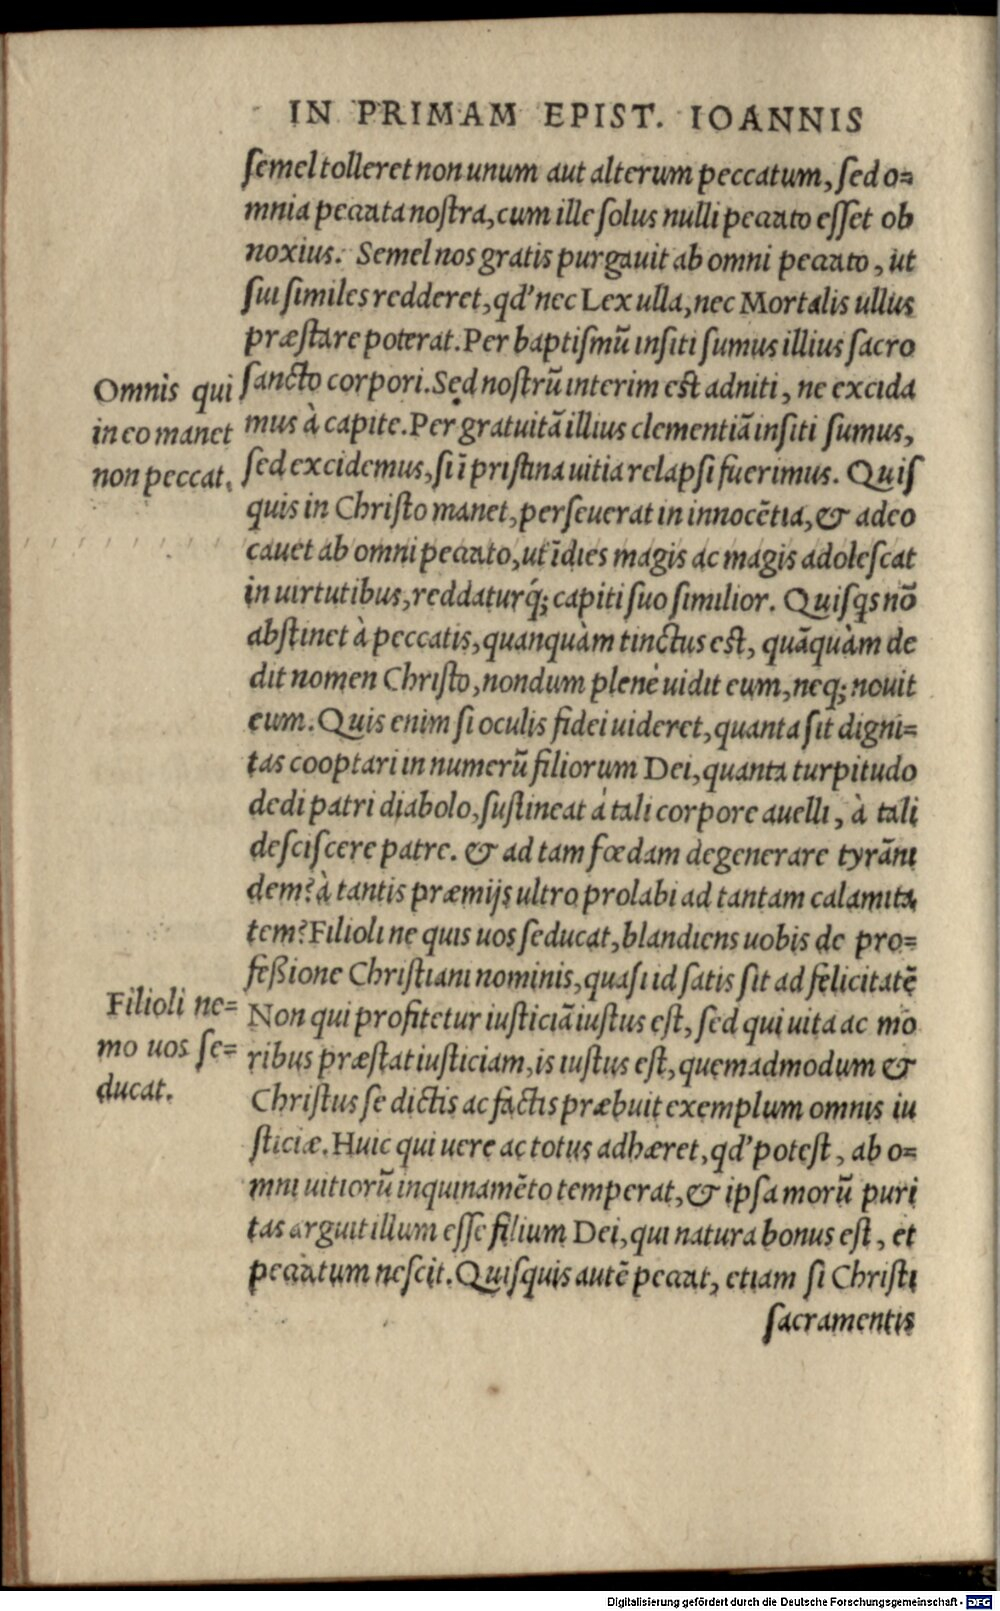 IN PRIMAM EPIST. IOANNIS
ſemel tolleret non unum aut alterum peccatum, ſed o=
mnia peccata noſtra, cum ille ſolus nulli peccato eſſet ob
noxius. Semel nos gratis purgauit ab omni peccato, ut
ſui ſimiles redderet, qd' nec Lex ulla, nec Mortalis ullus
præſtare poterat. Per baptiſmũ inſiti ſumus illius ſacro
ſancto corpori. Sed noſtrũ interim eſt adniti, ne excida
mus à capite. Per gratuitã illius clementiã inſiti ſumus,
ſed excidemus, ſi ĩ priſtina uitia relapſi fuerimus. Quiſ
quis in Chriſto manet, perſeuerat in innocẽtia, & adeo
cauet ab omni peccato, ut ĩdies magis ac magis adoleſcat
in uirtutibus, reddaturq́; capiti ſuo ſimilior. Quiſqs nõ
abſtinet à peccatis, quanquàm tinctus eſt, quãquàm de
dit nomen Chriſto, nondum plenè uidit eum, neq; nouit
eum. Quis enim ſi oculis fidei uideret, quanta ſit digni=
tas cooptari in numerũ filiorum Dei, quanta turpitudo
dedi patri diabolo, ſuſtineat à tali corpore auelli, à tali
deſciſcere patre. & ad tam fœdam degenerare tyrãni
dem? à tantis præmijs ultro prolabi ad tantam calamita
tem? Filioli ne quis uos ſeducat, blandiens uobis de pro=
feßione Chriſtiani nominis, quaſi id ſatis ſit ad felicitatẽ
Non qui profitetur iuſticiã iuſtus eſt, ſed qui uita ac mo
ribus præſtat iuſticiam, is iuſtus eſt, quemadmodum &
Chriſtus ſe dictis ac factis præbuit exemplum omnis iu
ſticiæ. Huic qui uere ac totus adhæret, qd' poteſt, ab o=
mni uitiorũ inquinamẽto temperat, & ipſa morũ puri
tas arguit illum eſſe filium Dei, qui natura bonus eſt, et
peccatum neſcit. Quiſquis autẽ peccat, etiam ſi Chriſti
ſacramentis
Omnis qui
in eo manet
non peccat.
Filioli ne=
mo uos ſe=
ducat.
Digitalisierung gefördert durch die Deutsche Forschungsgemeinschaft - DFG